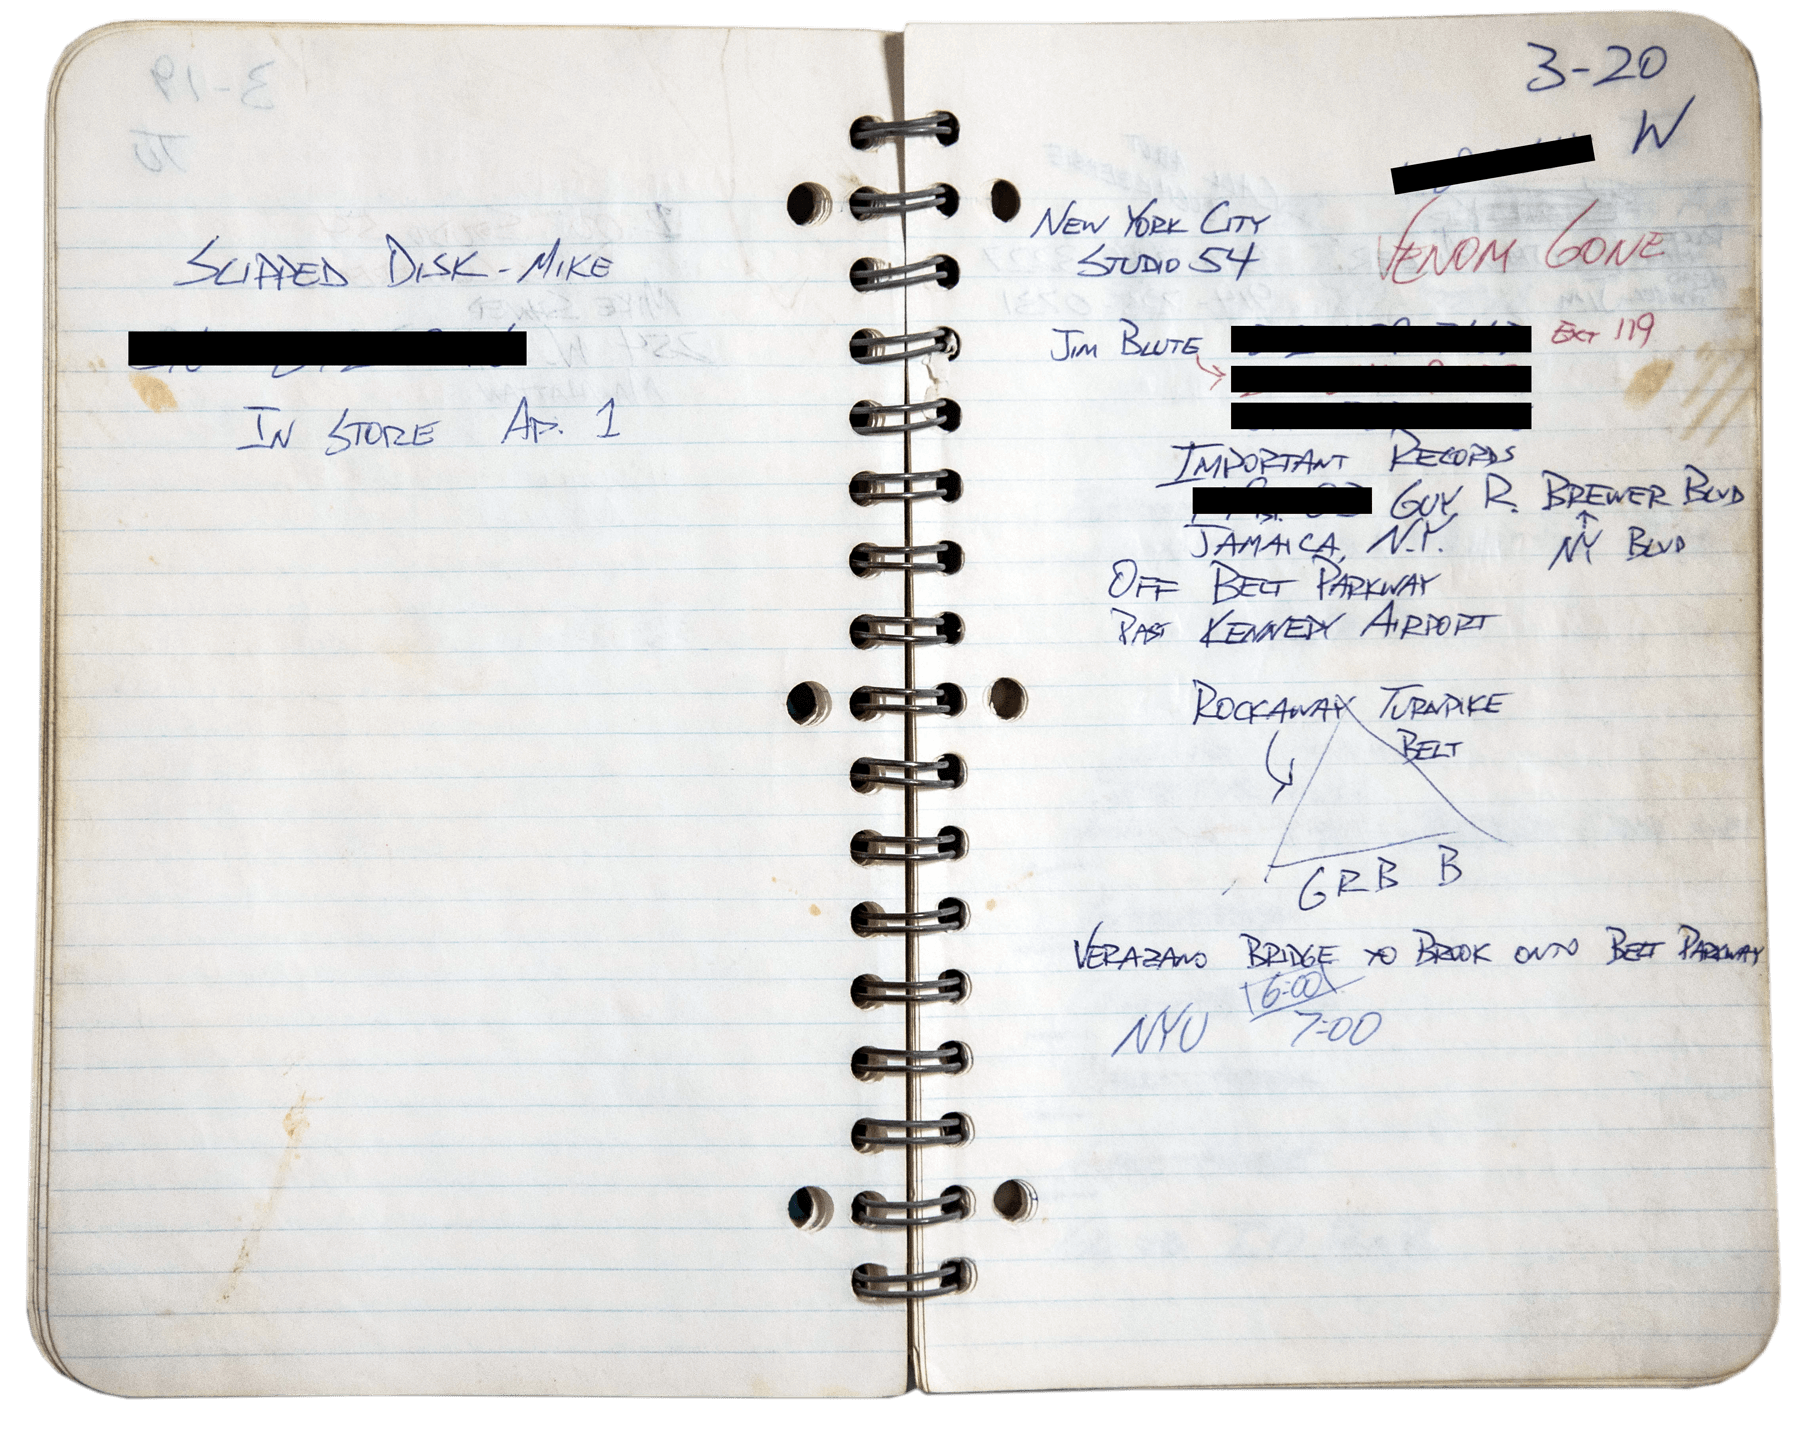 SLIPPED DISK - MIKE
IN STORE AP. 1
3-20
W
NEW YORK CITY
STUDIO 54
VENOM GONE
JIM BLUTE EXT 119
IMPORTANT RECORDS
GUY R. BREWER BLVD
JAMAICA, N.Y. NY BLVD
OFF BELT PARKWAY
PAST KENNEDY AIRPORT
ROCKAWAY TURNPIKE
BELT
GRB B
VERAZANO BRIDGE TO BROOK ONTO BELT PARKWAY
6:00
NYU 7:00